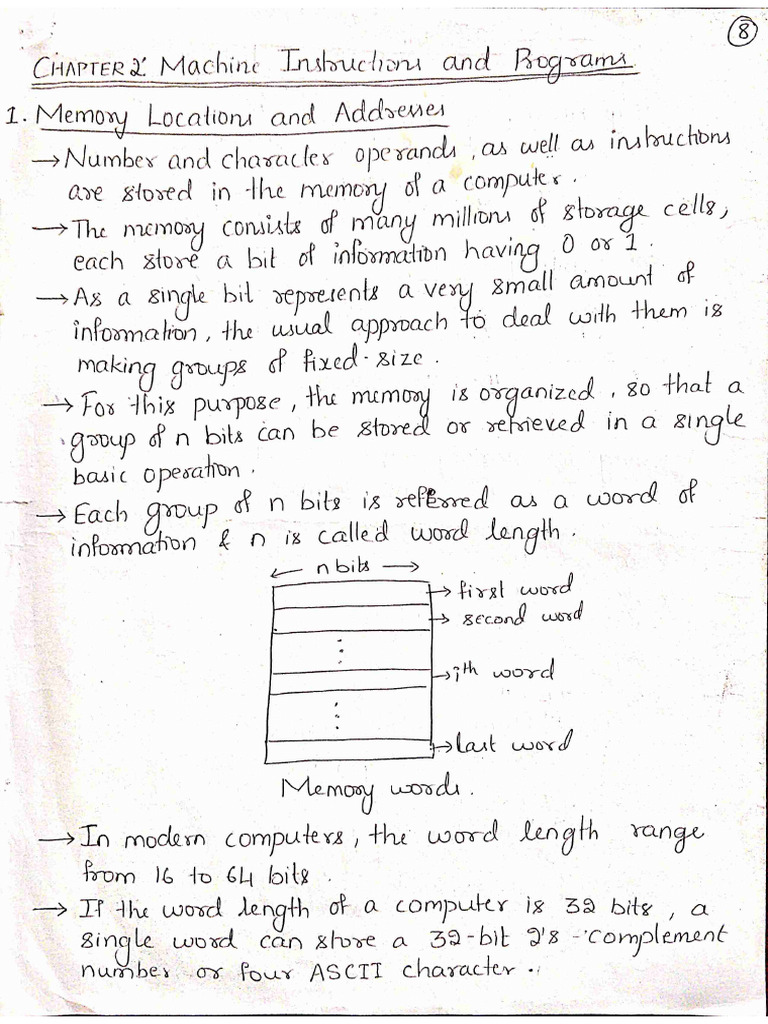 8
CHAPTER 2: Machine Instructions and Programs
1. Memory Locations and Addresses
→ Number and character operands, as well as instructions
are stored in the memory of a computer.
→ The memory consists of many millions of storage cells,
each store a bit of information having 0 or 1.
→ As a single bit represents a very small amount of
information, the usual approach to deal with them is
making groups of fixed-size.
→ For this purpose, the memory is organized, so that a
group of n bits can be stored or retrieved in a single
basic operation.
→ Each group of n bits is referred as a word of
information & n is called word length.
← n bits →
→ first word
→ second word
→ ith word
→ last word
Memory words.
→ In modern computers, the word length range
from 16 to 64 bits.
→ If the word length of a computer is 32 bits, a
single word can store a 32-bit 2's-complement
number or four ASCII character.